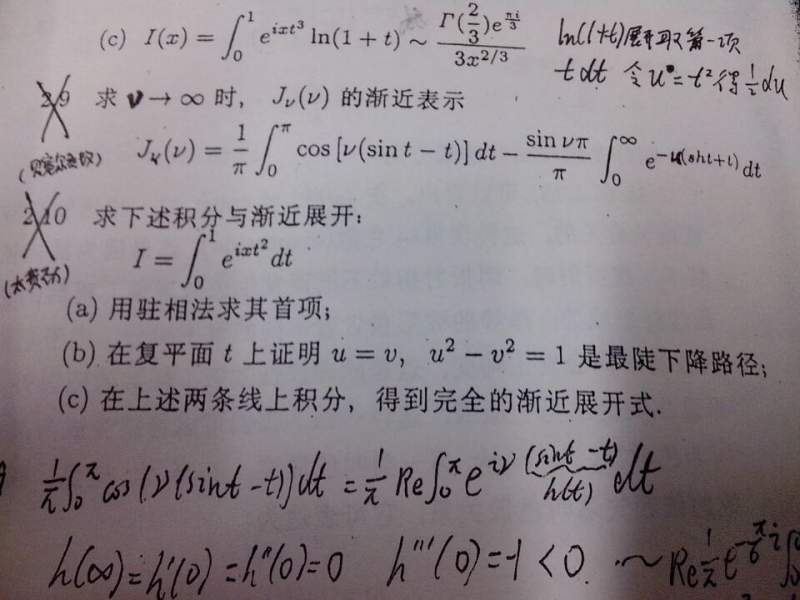 (c) I(x) = ∫₀¹ e^{ixt³} ln(1 + t) ~ Γ(2/3)e^{πi/3} / 3x^{2/3}
ln(1+t)展开取第一项
tdt 令u=t²得½du
2.9 求 ν → ∞ 时, J_ν(ν) 的渐近表示
(贝塞尔函数)
J_ν(ν) = 1/π ∫₀^π cos [ν(sin t − t)] dt − sin νπ/π ∫₀^∞ e^{−ν(sht+t)} dt
2.10 求下述积分与渐近展开:
I = ∫₀¹ e^{ixt²} dt
(太赛劲)
(a) 用驻相法求其首项;
(b) 在复平面 t 上证明 u = v, u² − v² = 1 是最陡下降路径;
(c) 在上述两条线上积分, 得到完全的渐近展开式.
1/π ∫₀^π cos(ν(sint−t))dt = 1/π Re∫₀^π e^{iν(sint−t)} dt
h(t)
h(∞)=h'(0)=h''(0)=0 h'''(0)=-1<0. ~ Re 1/π e^{-π/6 i} ∫₀